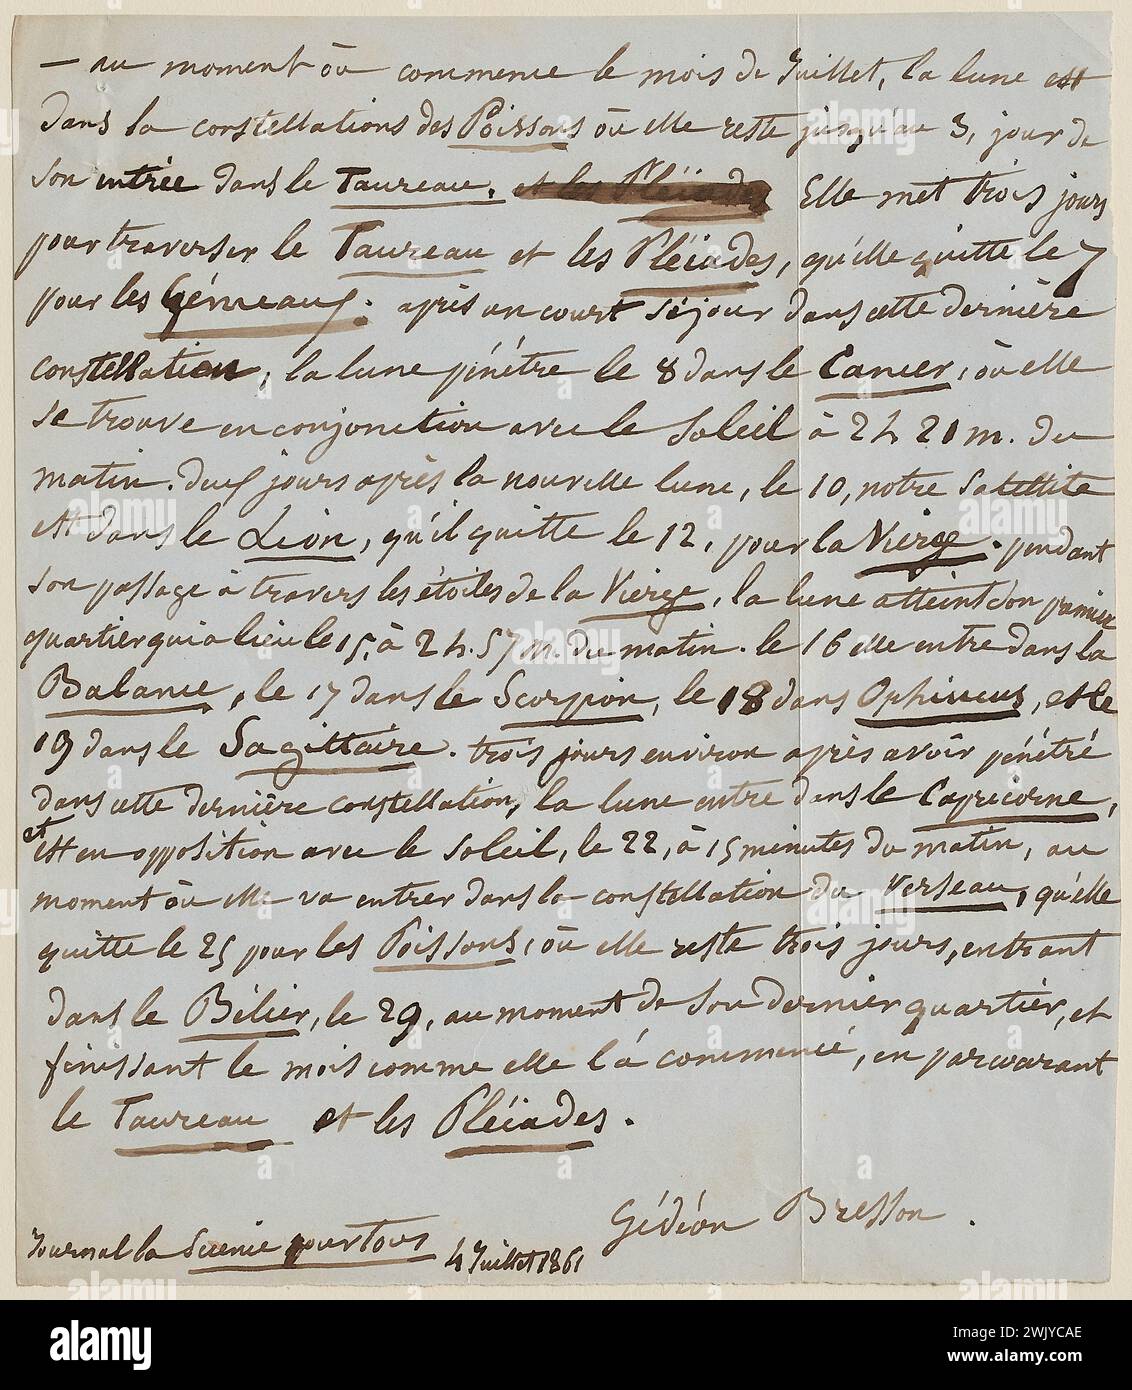 — au moment où commence le mois de Juillet, la lune est
dans la constellations des Poissons où elle reste jusqu'au 3, jour de
son entrée dans le Taureau. et les Pléiades Elle met trois jours
pour traverser le Taureau et les Pléiades, qu'elle quitte le 7
pour les Gémeaux. après un court séjour dans cette dernière
constellation, la lune pénétre le 8 dans le Cancer, où elle
se trouve en conjonction avec le Soleil à 2 h 21 m. du
matin. Deux jours après la nouvelle lune, le 10, notre satellite
est dans le Lion, qu'il quitte le 12, pour la Vierge. pendant
son passage à travers les étoiles de la Vierge, la lune atteint son premier
quartier qui a lieu le 15, à 2 h. 57 m. du matin. le 16 elle entre dans la
Balance, le 17 dans le Scorpion, le 18 dans Ophiucus, et le
19 dans le Sagittaire. trois jours environ après avoir pénétré
dans cette dernière constellation, la lune entre dans le Capricorne,
et
est en opposition avec le soleil, le 22, à 15 minutes du matin, au
moment où elle va entrer dans la constellation du Verseau, qu'elle
quitte le 25 pour les Poissons, où elle reste trois jours, entrant
dans le Bélier, le 29, au moment de son dernier quartier, et
finissant le mois comme elle l'a commencé, en parcourant
le Taureau et les Pléiades.
Gédéon Bresson.
Journal la Science pour tous 4 Juillet 1861
alamy
Image ID: 2WJYCAE
www.alamy.com